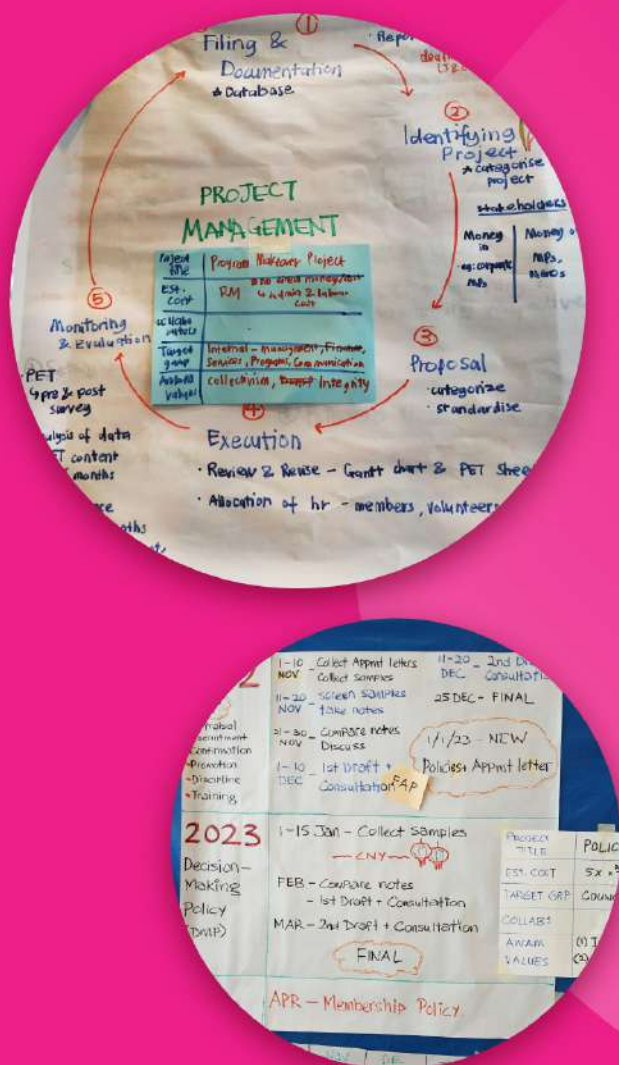 ①
Filing &
Documentation
* Database
②
Identifying
Project
* categorise
project
stakeholders
Money
in
Money
eg: corporate
MPs
MPs,
③
Proposal
• categorize
• standardise
PROJECT
MANAGEMENT
Project
title
Program Makeover Project
Est.
cost
RM
Target
group
Internal - management, Finance,
Services, Programs, Communication
values
collectivism, Integrity
④
Execution
• Review & Revise - Gantt chart & PET
• Allocation of hr - members, volunteers
⑤
Monitoring
& Evaluation
PET
pre & post
survey
of data
content
months
1-10
NOV
- Collect Appmt letters
Collect samples
11-20
NOV
- screen samples
take notes
21-30
NOV
- Compare notes
Discuss
1-10
DEC
- 1st Draft +
Consultation
FAP
11-20
DEC
- 2nd
Consultation
25 DEC - FINAL
1/1/23 - NEW
Policies + Appmt letter
Confirmation
• Promotion
• Discipline
• Training
2023
Decision-
Making
Policy
(DMP)
1-15 Jan - Collect samples
- CNY -
FEB - Compare notes
- 1st Draft + Consultation
MAR - 2nd Draft + Consultation
FINAL
APR - Membership Policy
PROJECT
TITLE
EST. COST
TARGET GRP
COLLABS
AWAM
VALUES
NOV
DEC